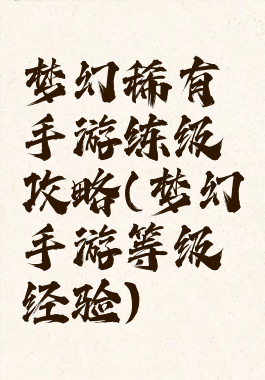 梦幻稀有
手游练级
攻略(梦幻
手游等级
经验)